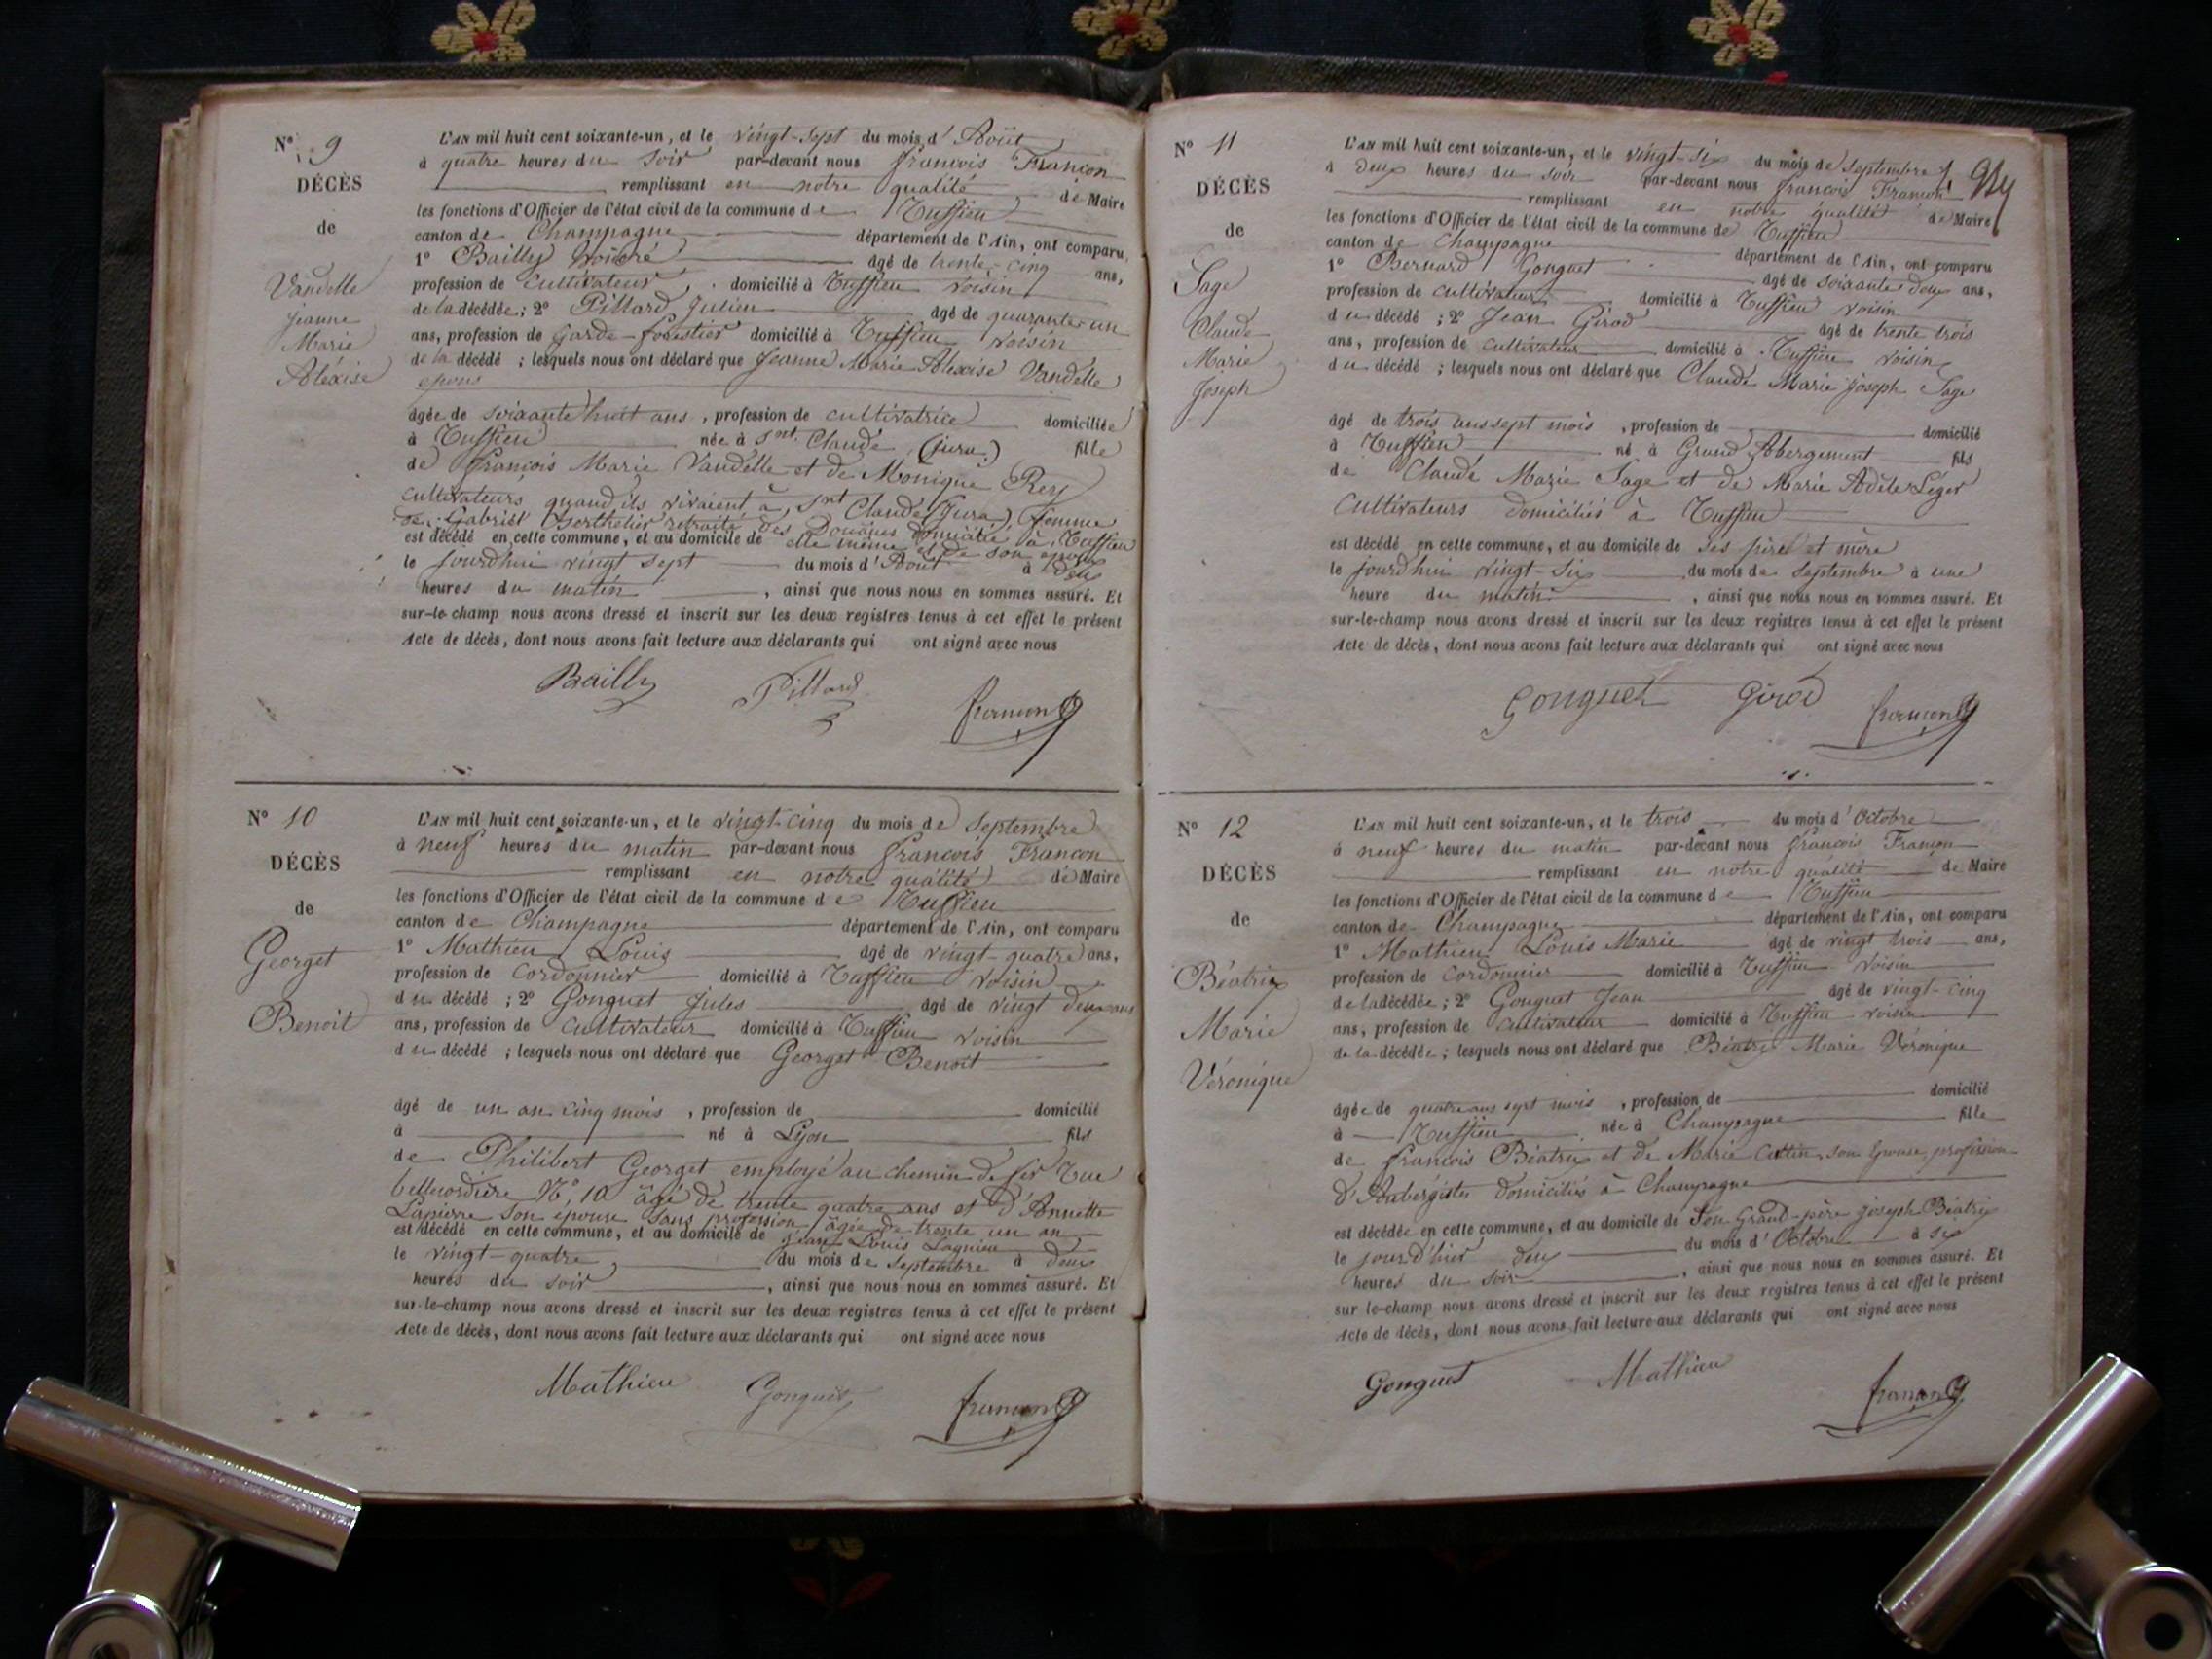 N° 9
DÉCÈS
de
Vandelle
Jeanne
Marie
Aléxise
L'AN mil huit cent soixante-un, et le vingt-sept du mois d'Août
à quatre heures du soir par-devant nous françois Françon
remplissant en notre qualité de Maire
les fonctions d'Officier de l'état civil de la commune de Ruffieu
canton de Champagne département de l'Ain, ont comparu
1° Bailly âgé de trente-cinq ans,
profession de cultivateur, domicilié à Ruffieu voisin
de la décédée; 2° Pillard Julien âgé de quarante-un
ans, profession de Garde-forestier domicilié à Ruffieu voisin
de la décédé ; lesquels nous ont déclaré que Jeanne Marie Alexise Vandelle
âgée de soixante huit ans, profession de cultivatrice domiciliée
à Ruffieu née à Snt Claude (jura) fille
de françois Marie Vandelle et de Monique Rey
cultivateurs quand ils vivaient à Snt Claude (Jura), femme
de Gabriel Berthelier retraité des Douanes domicilié à Ruffieu
est décédé en cette commune, et au domicile de elle même et de son époux
le jourdhui vingt sept du mois d'Août à deux
heures du matin, ainsi que nous nous en sommes assuré. Et
sur-le-champ nous avons dressé et inscrit sur les deux registres tenus à cet effet le présent
Acte de décès, dont nous avons fait lecture aux déclarants qui ont signé avec nous
Bailly Pillard françon
N° 10
DÉCÈS
de
Georget
Benoit
L'AN mil huit cent soixante-un, et le vingt-cinq du mois de Septembre
à neuf heures du matin par-devant nous françois Françon
remplissant en notre qualité de Maire
les fonctions d'Officier de l'état civil de la commune de Ruffieu
canton de Champagne département de l'Ain, ont comparu
1° Mathieu Louis âgé de vingt-quatre ans,
profession de Cordonnier domicilié à Ruffieu voisin
du décédé ; 2° Gonguet Jules âgé de vingt deux ans
ans, profession de cultivateur domicilié à Ruffieu voisin
du décédé ; lesquels nous ont déclaré que Georget Benoit
âgé de un an cinq mois, profession de domicilié
à né à Lyon fils
de Philibert Georget employé au chemin de fer Rue
bellecordière N° 10 âgé de trente quatre ans et d'Annette
Lapierre son épouse sans profession âgée de trente un an
est décédé en cette commune, et au domicile de Jean Louis Lagnieu
le vingt-quatre du mois de Septembre à deux
heures du soir, ainsi que nous nous en sommes assuré. Et
sur-le-champ nous avons dressé et inscrit sur les deux registres tenus à cet effet le présent
Acte de décès, dont nous avons fait lecture aux déclarants qui ont signé avec nous
Mathieu Gonguet françon
N° 11
DÉCÈS
de
Sage
Claude
Marie
Joseph
L'AN mil huit cent soixante-un, et le vingt-six du mois de Septembre
à deux heures du soir par-devant nous françois Françon
remplissant en notre qualité de Maire
les fonctions d'Officier de l'état civil de la commune de Ruffieu
canton de Champagne département de l'Ain, ont comparu
1° Bernard Gonguet âgé de soixante deux ans,
profession de cultivateur domicilié à Ruffieu voisin
du décédé ; 2° Jean Girod âgé de trente trois
ans, profession de cultivateur domicilié à Ruffieu voisin
du décédé ; lesquels nous ont déclaré que Claude Marie Joseph Sage
âgé de trois ans sept mois, profession de domicilié
à Ruffieu né à Grand Abergement fils
de Claude Marie Sage et de Marie Adèle Léger
cultivateurs domiciliés à Ruffieu
est décédé en cette commune, et au domicile de ses père et mère
le jourdhui vingt-six du mois de Septembre à une
heure du matin, ainsi que nous nous en sommes assuré. Et
sur-le-champ nous avons dressé et inscrit sur les deux registres tenus à cet effet le présent
Acte de décès, dont nous avons fait lecture aux déclarants qui ont signé avec nous
Gonguet Girod françon
N° 12
DÉCÈS
de
Béatrix
Marie
Véronique
L'AN mil huit cent soixante-un, et le trois du mois d'Octobre
à neuf heures du matin par-devant nous françois Françon
remplissant en notre qualité de Maire
les fonctions d'Officier de l'état civil de la commune de Ruffieu
canton de Champagne département de l'Ain, ont comparu
1° Mathieu Louis Marie âgé de vingt trois ans,
profession de Cordonnier domicilié à Ruffieu voisin
de la décédée ; 2° Gonguet Jean âgé de vingt-cinq
ans, profession de cultivateur domicilié à Ruffieu voisin
de la décédée ; lesquels nous ont déclaré que Béatrix Marie Véronique
âgée de quatre ans sept mois, profession de domicilié
à Ruffieu née à Champagne fille
de françois Béatrix et de Marie son Epouse profession
d'Aubergistes domiciliés à Champagne
est décédée en cette commune, et au domicile de Son Grand-père joseph Béatrix
le jourd'hier deux du mois d'Octobre à six
heures du soir, ainsi que nous nous en sommes assuré. Et
sur-le-champ nous avons dressé et inscrit sur les deux registres tenus à cet effet le présent
Acte de décès, dont nous avons fait lecture aux déclarants qui ont signé avec nous
Gonguet Mathieu françon